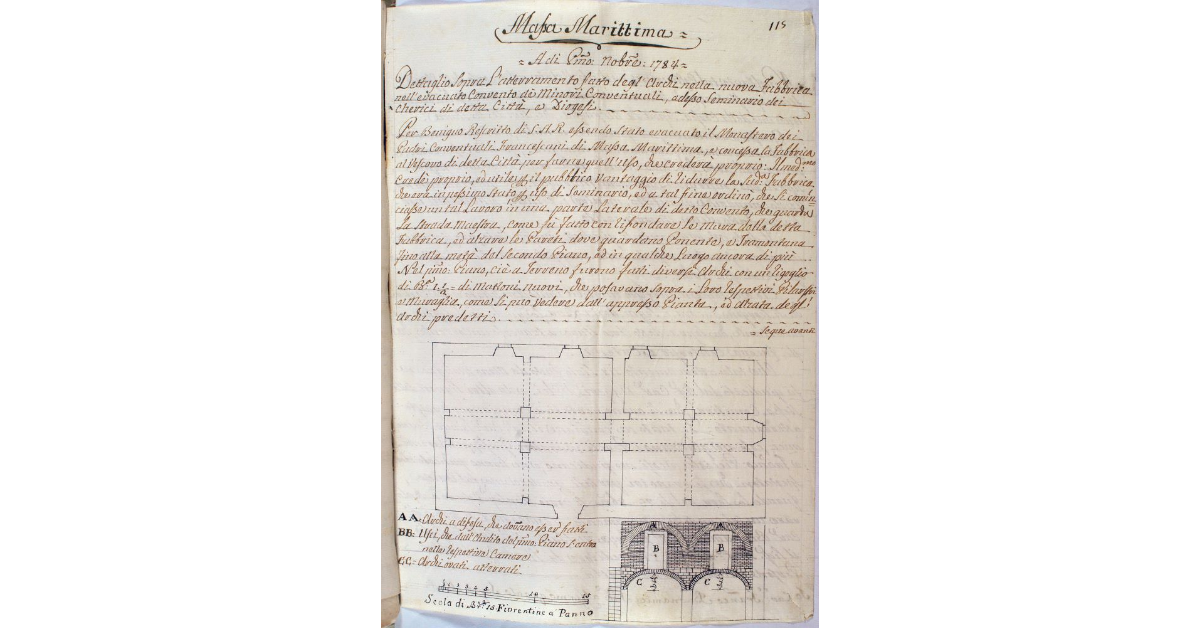 115
Massa Marittima =
= A di Pmo: Nobre: 1784 =
Dettaglio Sopra L'atterramento fatto degl'Archi nella nuova Fabbrica
nell'evacuato Convento di Minori Conventuali, adesso Seminario dei
Cherici di detta Città, e Diogesi.
Per Benigno Rescritto di S.A.R. essendo stato evacuato il Monastero dei
Padri Conventuali Francescani di Massa Marittima, e concessa la Fabbrica
al Vescovo di detta Città per farne quell'Uso, che crederà proprio: Il med:mo
Credè proprio, ed utile p il pubblico vantaggio di ridurre la Sud:a Fabbrica,
che era in pessimo stato p uso di Seminario, ed a tal fine ordinò, che si comin-
ciasse un tal Lavoro in una parte Laterale di detto Convento, che guarda
La Strada Maestra, come fù fatto con rifondare le Mura della detta
Fabbrica, ed alzare le Pareti dove guardano Ponente, e Tramontana
fino alla metà del Secondo Piano, ed in qualche Luogo ancora di più
Nel pmo: Piano, ciè a Terreno furono fatti diversi Archi con un
di di Mattoni nuovi, che posavano sopra i Loro respettivi Pilastri
e Muraglia, come si può vedere dall'appresso Pianta, ed Alzata degl'
Archi predetti
= Segue avanti
AA: Archi a difesa, che dovano esser fatti.
BB: Usci, che dall'Andito del pmo: Piano s'entra
nelle respettive Camere
CC: Archi ovati atterrati.
A A
B B
C C
1 2 3 4 5 10 15
Scala di Bra 15 Fiorentine a Panno